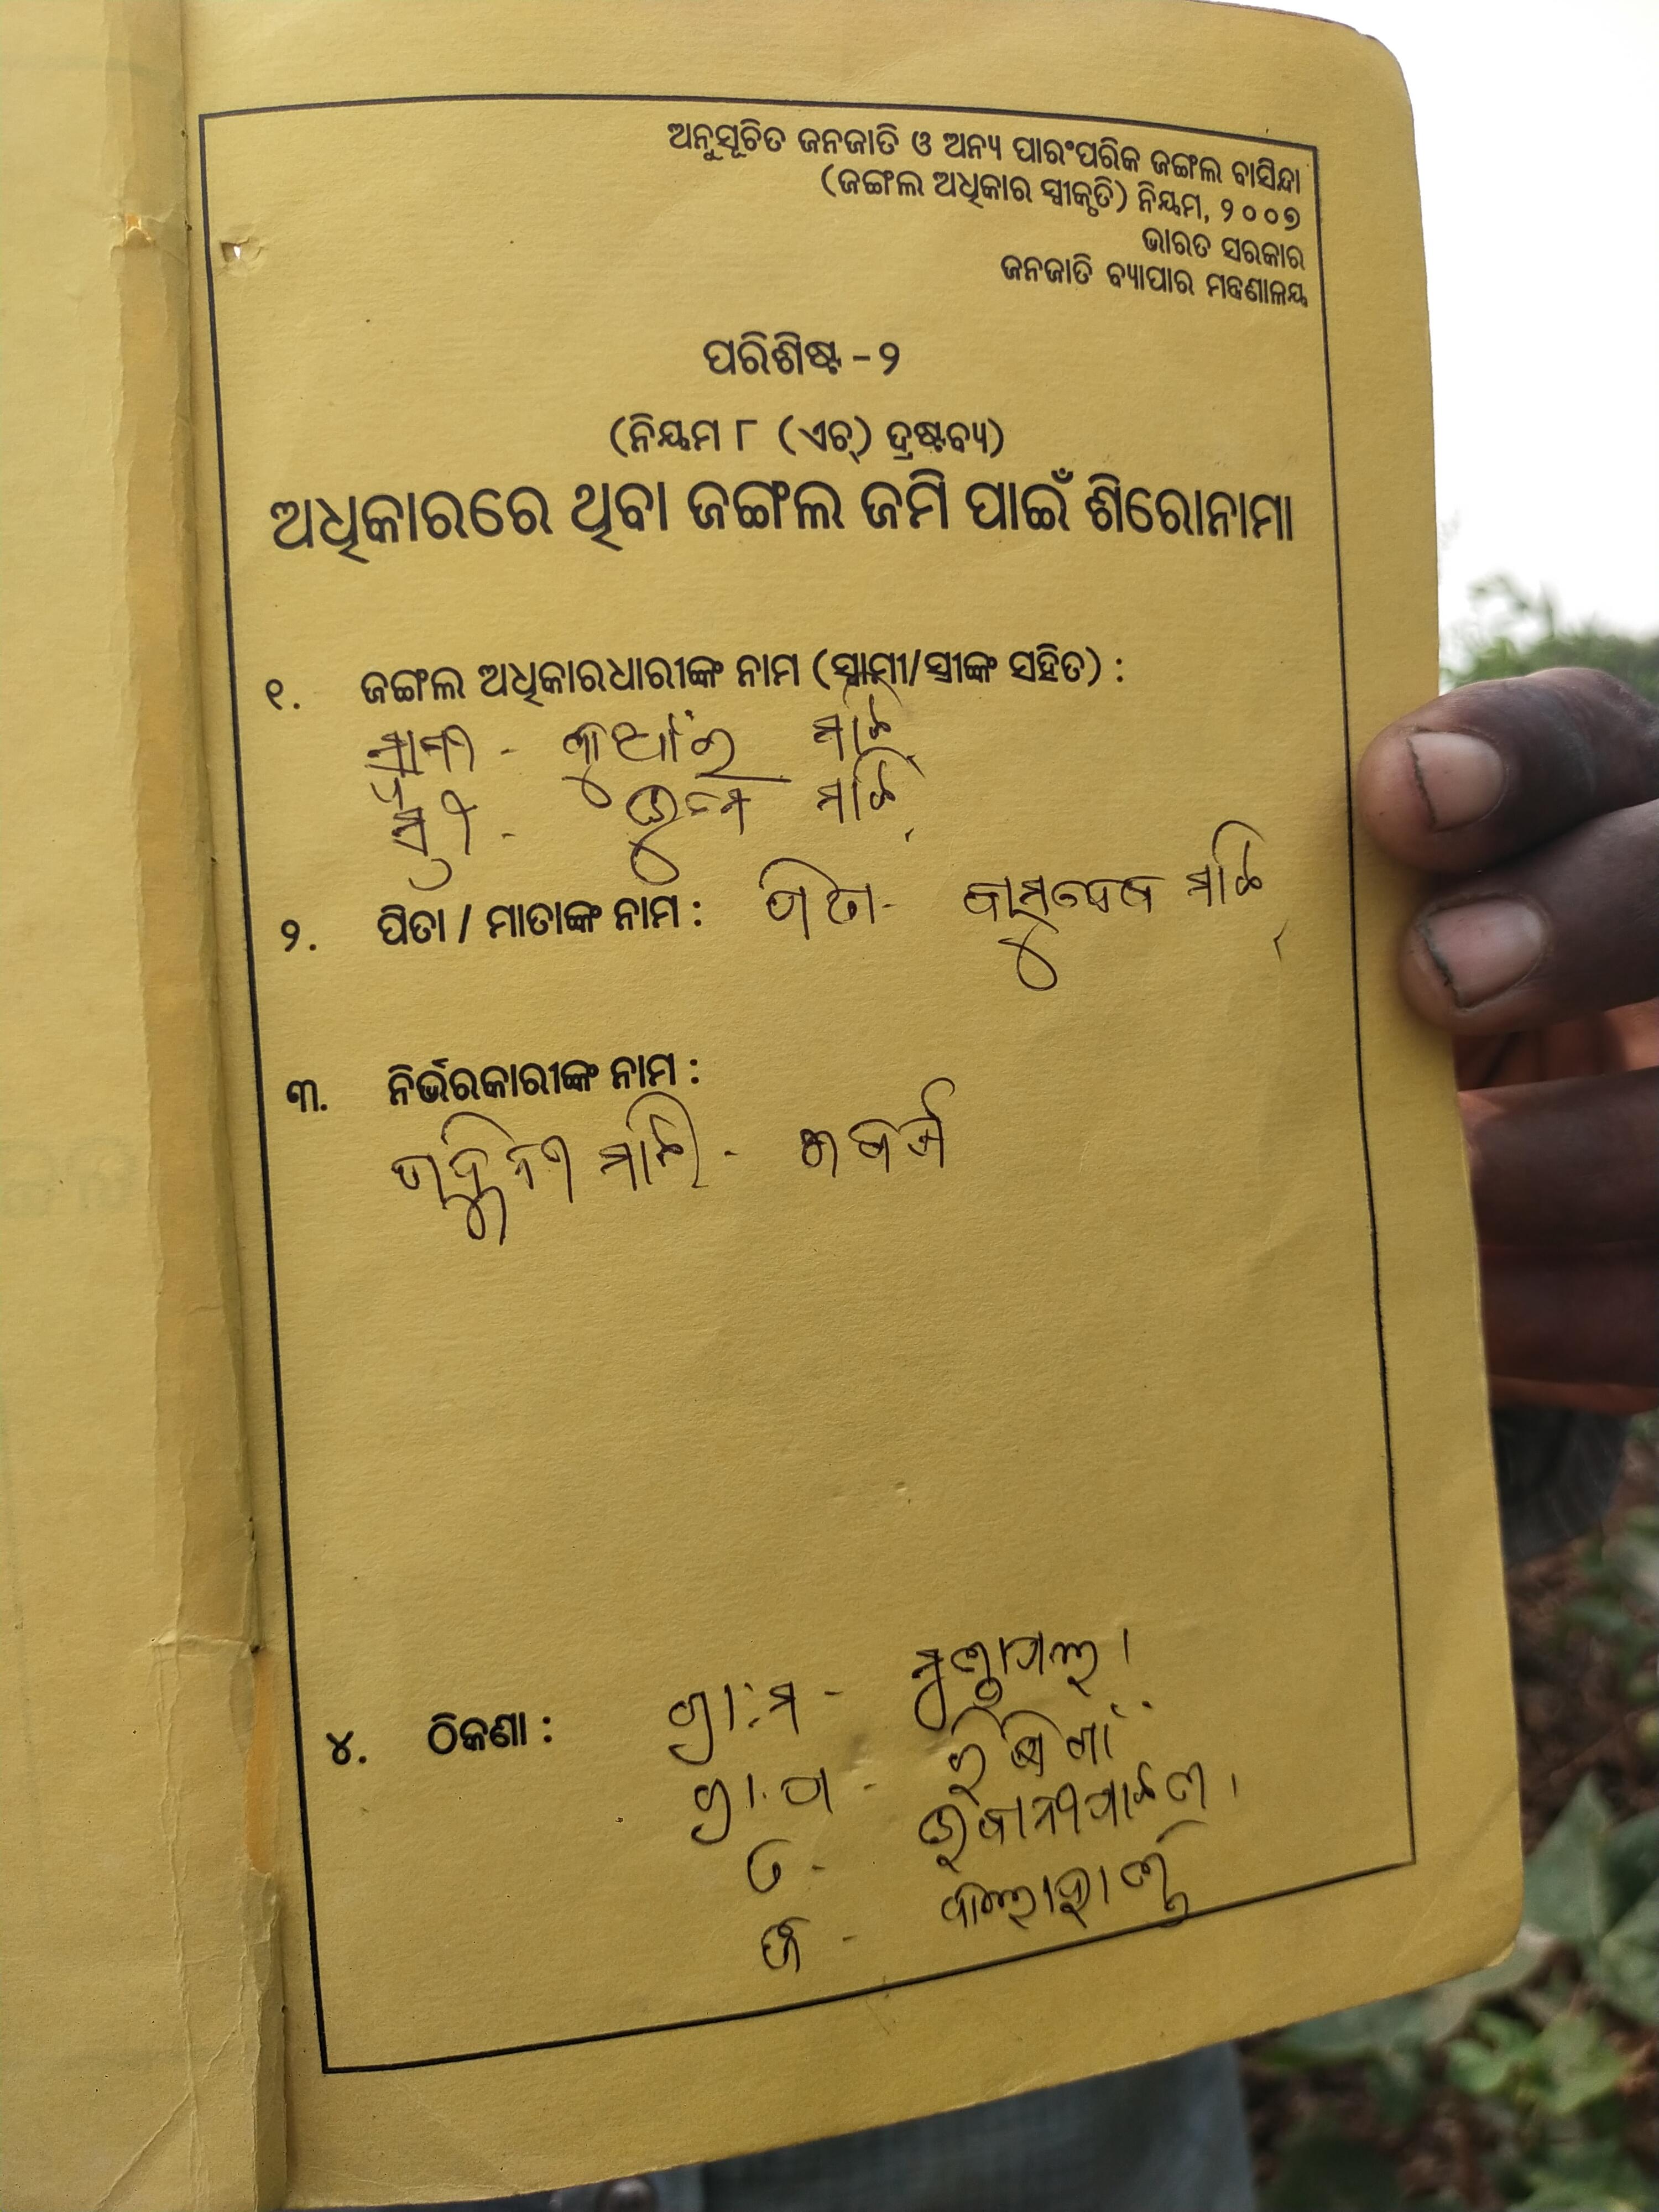 ଅନୁସୂଚିତ ଜନଜାତି ଓ ଅନ୍ୟ ପାରଂପରିକ ଜଙ୍ଗଲ ବାସିନ୍ଦା
(ଜଙ୍ଗଲ ଅଧିକାର ସ୍ୱୀକୃତି) ନିୟମ, ୨୦୦୭
ଭାରତ ସରକାର
ଜନଜାତି ବ୍ୟାପାର ମନ୍ତ୍ରଣାଳୟ
ପରିଶିଷ୍ଟ - ୨
(ନିୟମ ୮ (ଏଚ୍) ଦ୍ରଷ୍ଟବ୍ୟ)
ଅଧିକାରରେ ଥିବା ଜଙ୍ଗଲ ଜମି ପାଇଁ ଶିରୋନାମା
୧. ଜଙ୍ଗଲ ଅଧିକାରଧାରୀଙ୍କ ନାମ (ସ୍ୱାମୀ/ସ୍ତ୍ରୀଙ୍କ ସହିତ) :
ସ୍ୱାମୀ - ମାଝି
ସ୍ତ୍ରୀ - ମାଝି
୨. ପିତା / ମାତାଙ୍କ ନାମ : ପିତା - ବାସୁଦେବ ମାଝି
୩. ନିର୍ଭରକାରୀଙ୍କ ନାମ :
ମାଝି -
୪. ଠିକଣା : ଗ୍ରାମ -
ଗ୍ରା.ପ -
ତ - ଭବାନୀପାଟଣା
ଜି - କଳାହାଣ୍ଡି